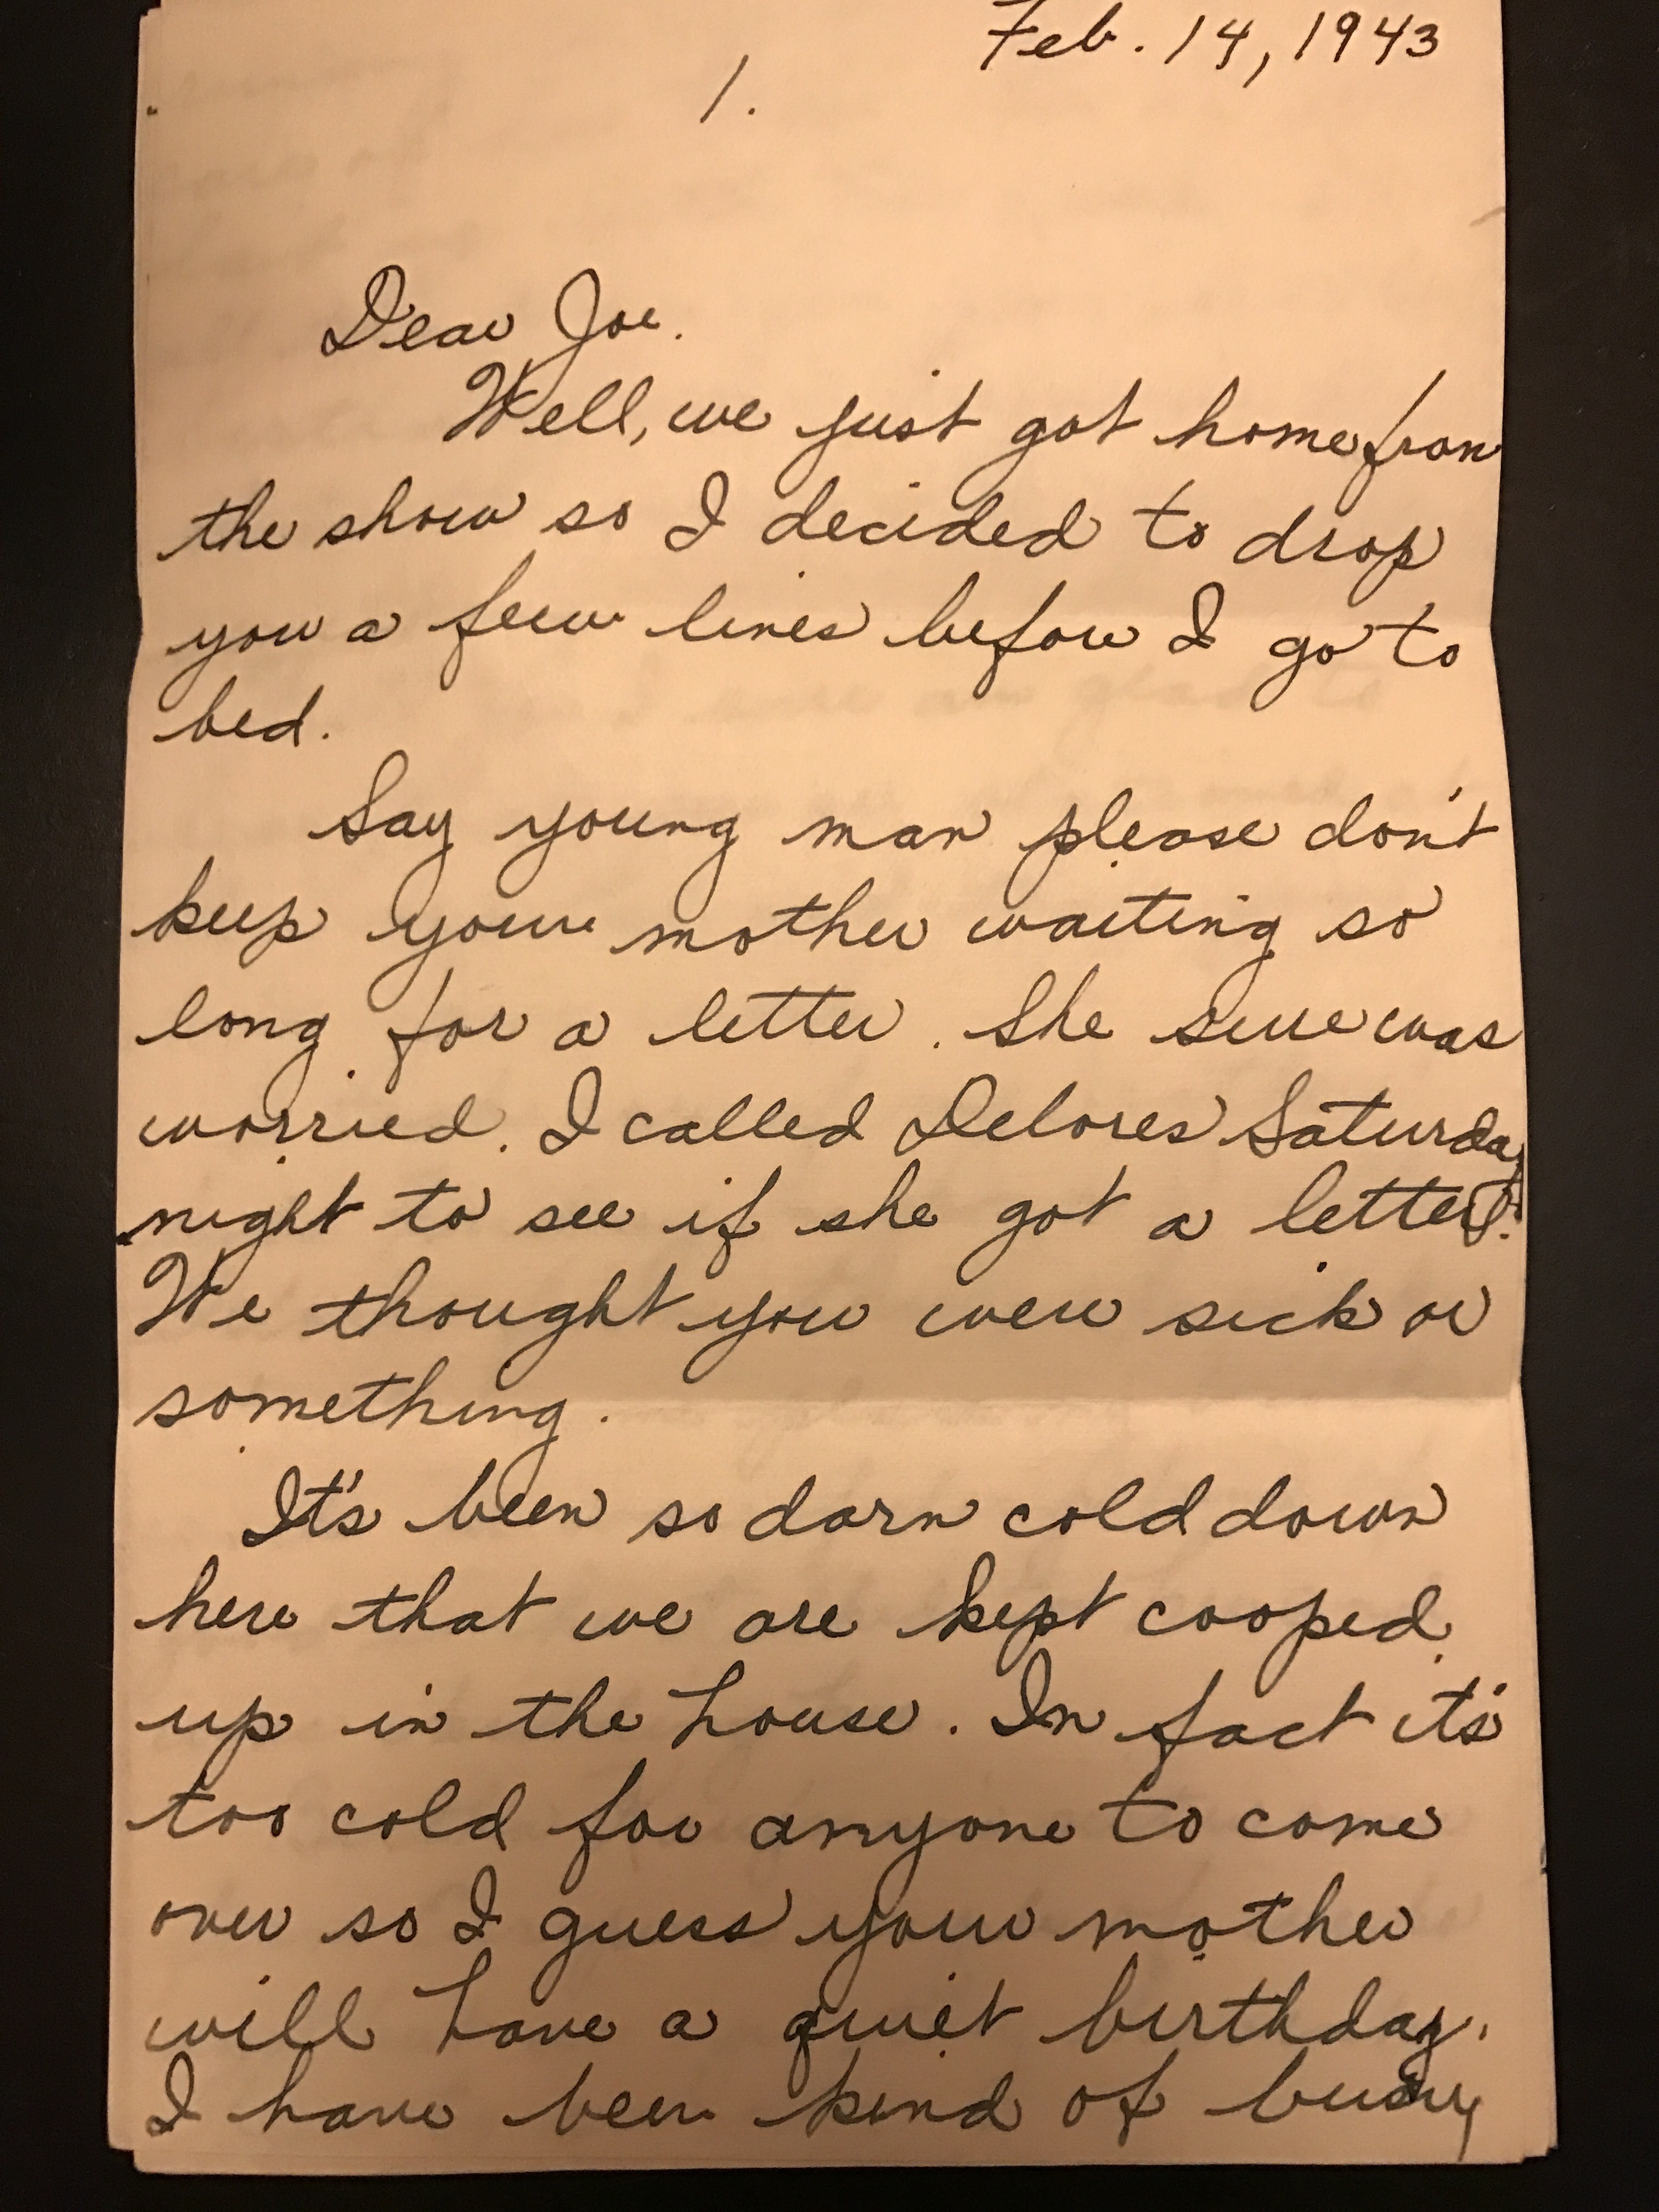 Feb. 14, 1943
1.
Dear Joe.
Well, we just got home from
the show so I decided to drop
you a few lines before I go to
bed.
Say young man please don't
keep your mother waiting so
long for a letter. She sure was
worried. I called Delores Saturday
night to see if she got a letter.
We thought you were sick or
something.
It's been so darn cold down
here that we are kept cooped
up in the house. In fact it's
too cold for anyone to come
over so I guess your mother
will have a quiet birthday.
I have been kind of busy